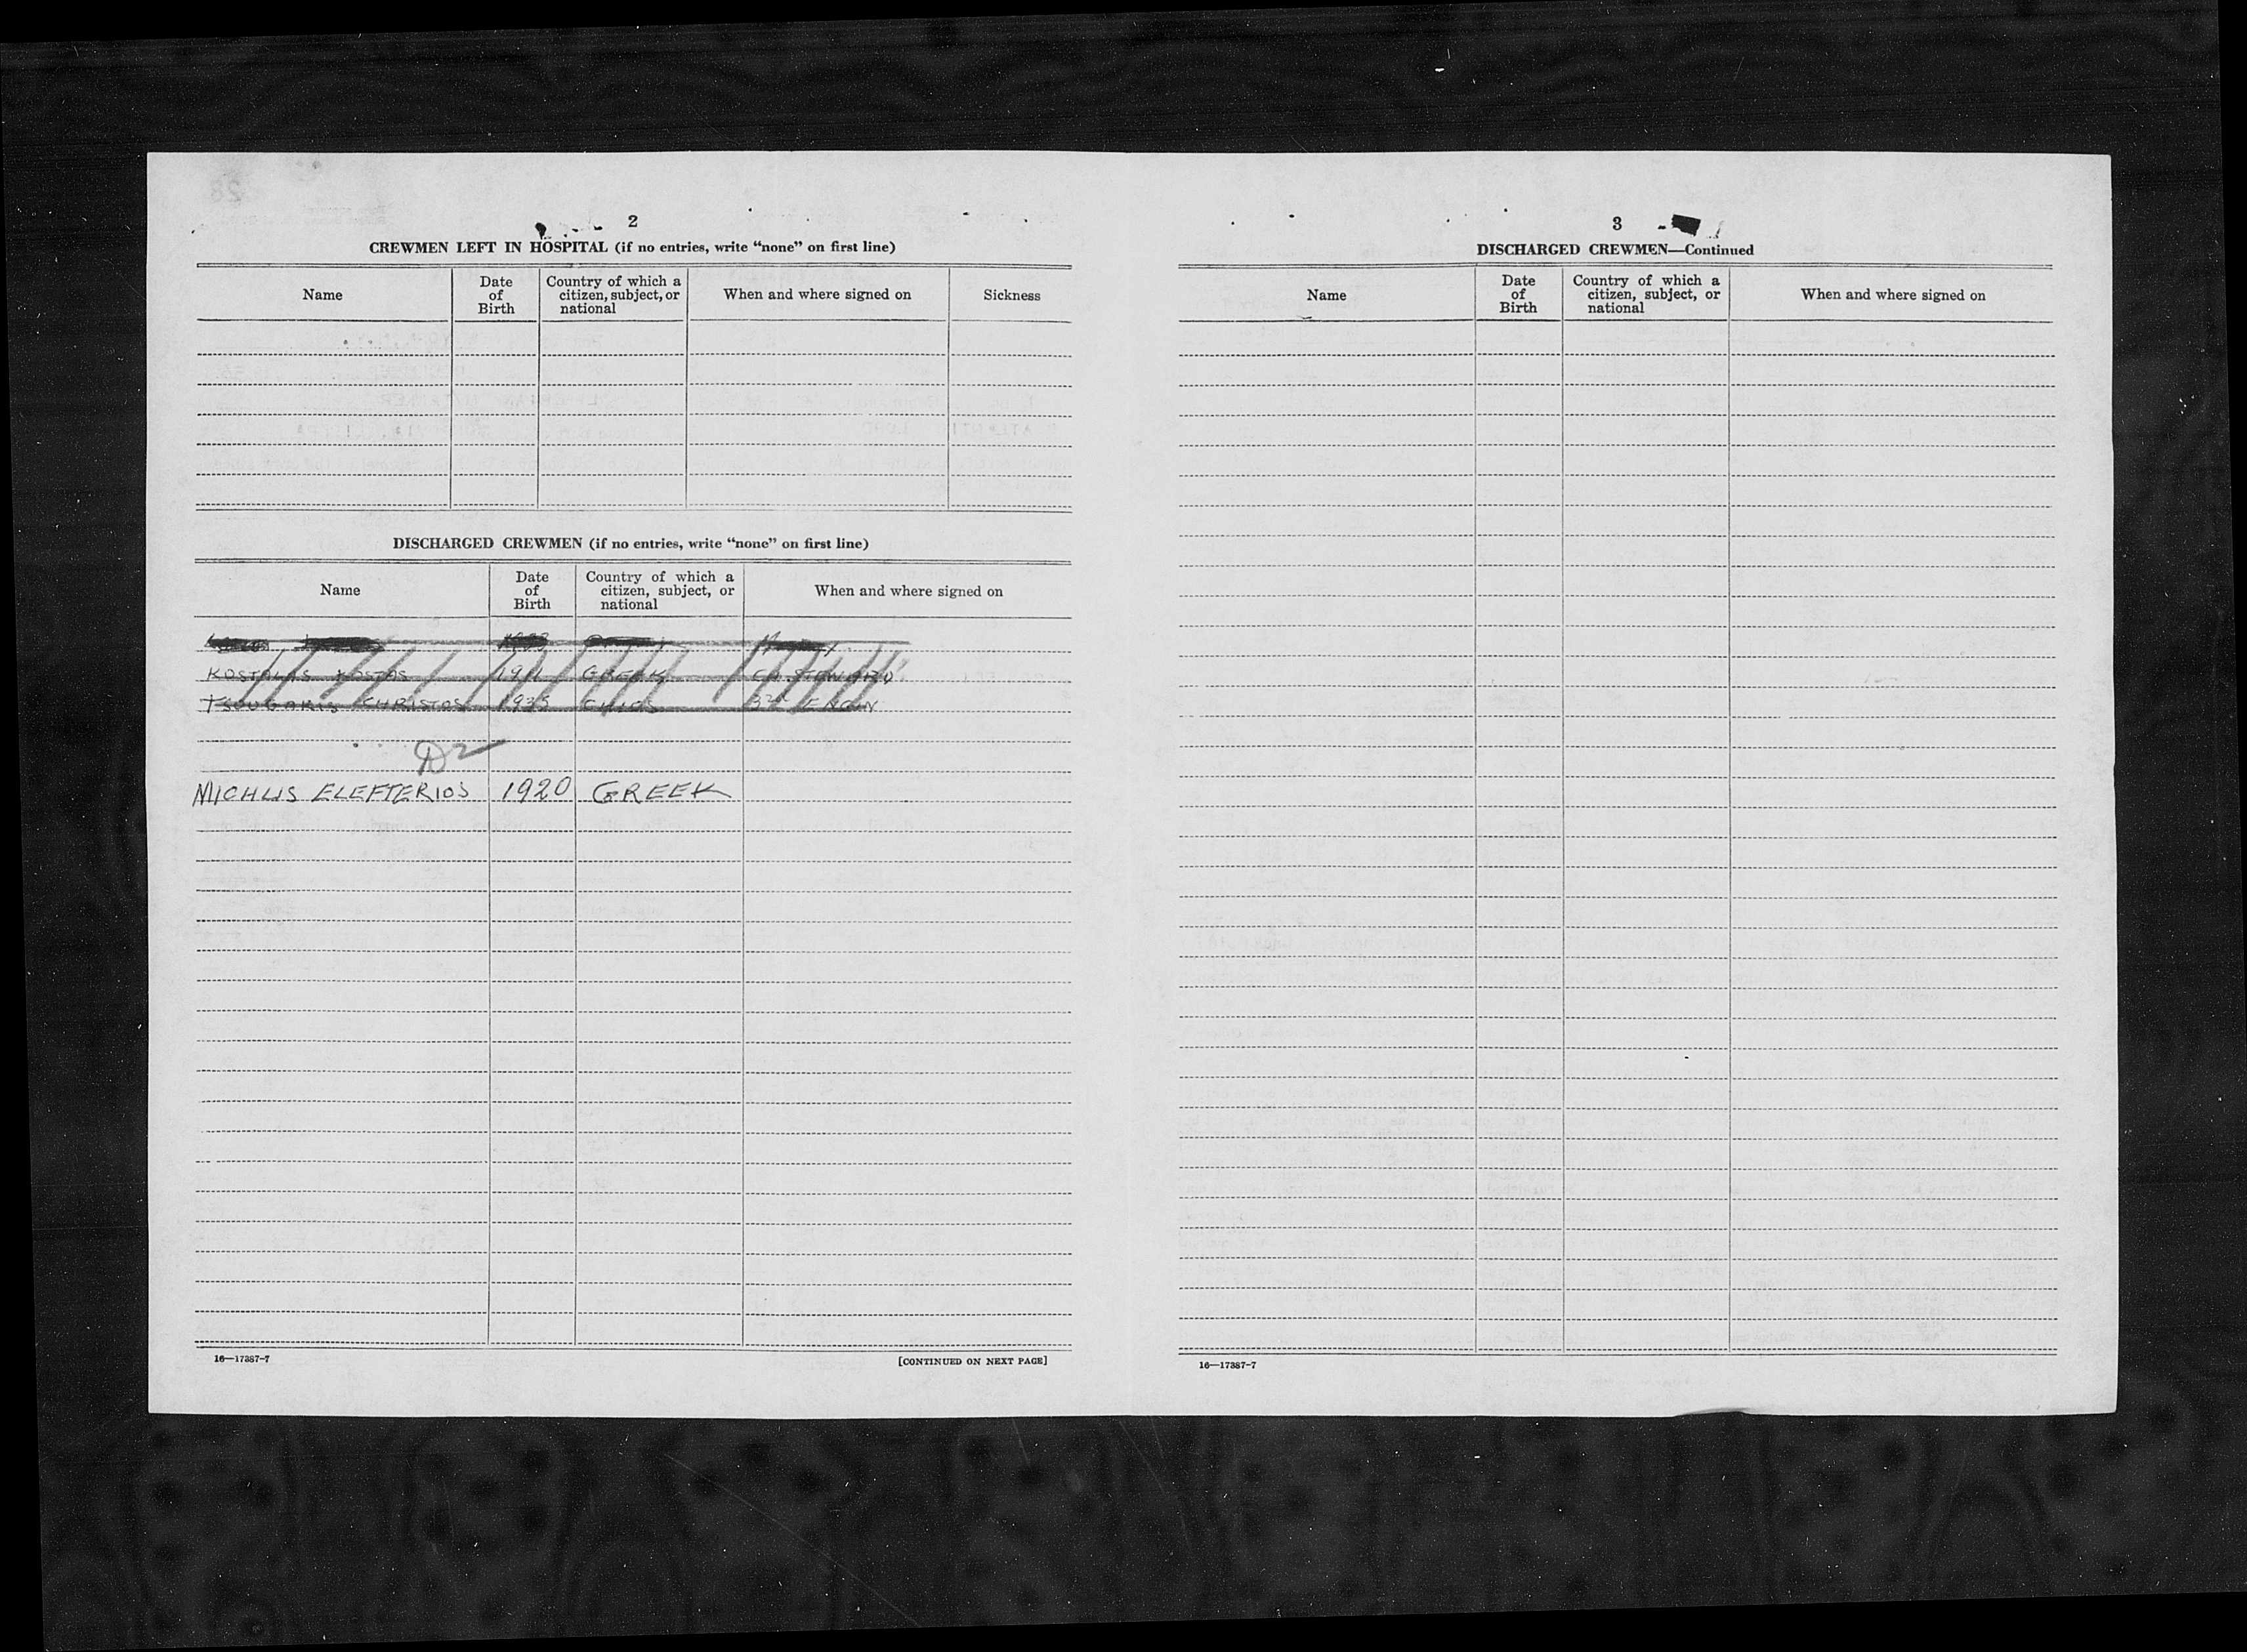 2
CREWMEN LEFT IN HOSPITAL (if no entries, write “none” on first line)
Name
Date of Birth
Country of which a citizen, subject, or national
When and where signed on
Sickness
DISCHARGED CREWMEN (if no entries, write “none” on first line)
Name
Date of Birth
Country of which a citizen, subject, or national
When and where signed on
KOSTALAS KOSTAS 1911 GREEK CH. STEWARD
TSOUGARIS CHRISTOS 1935 CHIOS
D2
MICHLIS ELEFTERIOS 1920 GREEK
16—17387-7
[CONTINUED ON NEXT PAGE]
3
DISCHARGED CREWMEN—Continued
Name
Date of Birth
Country of which a citizen, subject, or national
When and where signed on
16—17387-7